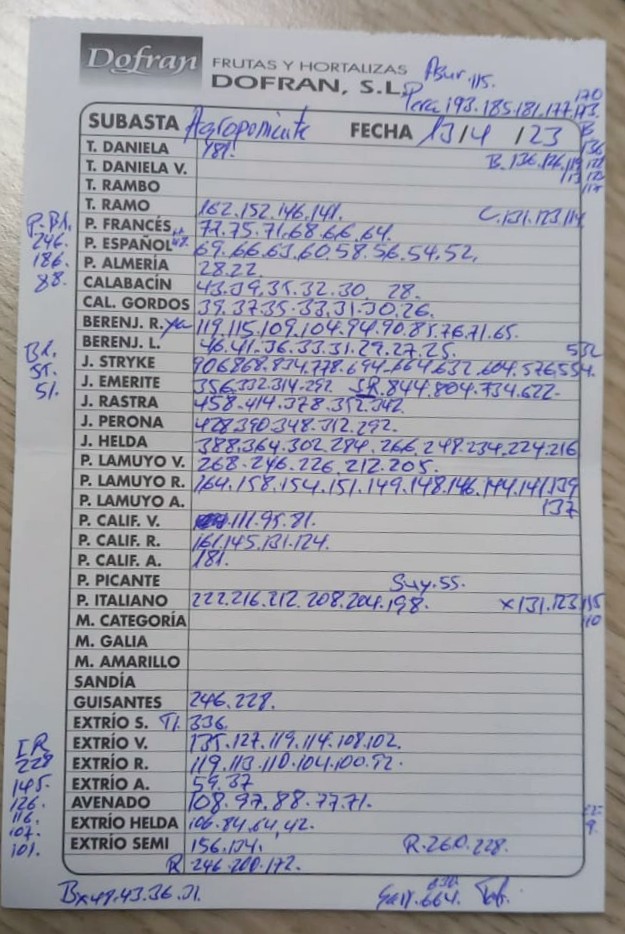 Dofran FRUTAS Y HORTALIZAS
DOFRAN, S.L.
Abur.115.
Pera 193.185.181.177.173. 170
SUBASTA Agroponiente FECHA 13/4/23
T. DANIELA 181.
T. DANIELA V. B.136.126.119
T. RAMBO
T. RAMO 162.152.146.141. C.131.123.114
P. FRANCÉS 77.75.71.68.66.64.
P. ESPAÑOL 69.66.63.60.58.56.54.52.
P. ALMERÍA 28.22.
P.Bl.
246.
186.
88.
CALABACÍN 43.39.35.32.30. 28.
CAL. GORDOS 39.37.35.33.31.30.26.
BERENJ. R. 119.115.109.104.94.90.85.76.71.65.
BERENJ. L. 46.41.36.33.31.29.27.25. 532
J. STRYKE 906.868.834.778.694.664.632.604.576.554.
J. EMERITE 356.332.314.292. SR.844.804.734.622.
Bl.
55.
51.
J. RASTRA 458.414.378.352.342.
J. PERONA 428.390.348.312.292.
J. HELDA 388.364.302.284.266.248.234.224.216
P. LAMUYO V. 268.246.226.212.205.
P. LAMUYO R. 164.158.154.151.149.148.146.144.141.139
P. LAMUYO A. 137
P. CALIF. V. 111.95.81.
P. CALIF. R. 161.145.131.124.
P. CALIF. A. 181.
P. PICANTE Suy.55.
P. ITALIANO 222.216.212.208.204.198. x131.123.115
M. CATEGORÍA 110
M. GALIA
M. AMARILLO
SANDÍA
GUISANTES 246.228.
EXTRÍO S. T1. 336
EXTRÍO V. 135.127.119.114.108.102.
EXTRÍO R. 119.113.110.104.100.92.
EXTRÍO A. 59.37
AVENADO 108.97.88.77.71.
EXTRÍO HELDA 106.84.64.42.
EXTRÍO SEMI 156.134. R.260.228.
R 246.200.172.
IR
228
145.
126.
116.
107.
101.
Bx49.43.36.31.
830
664.